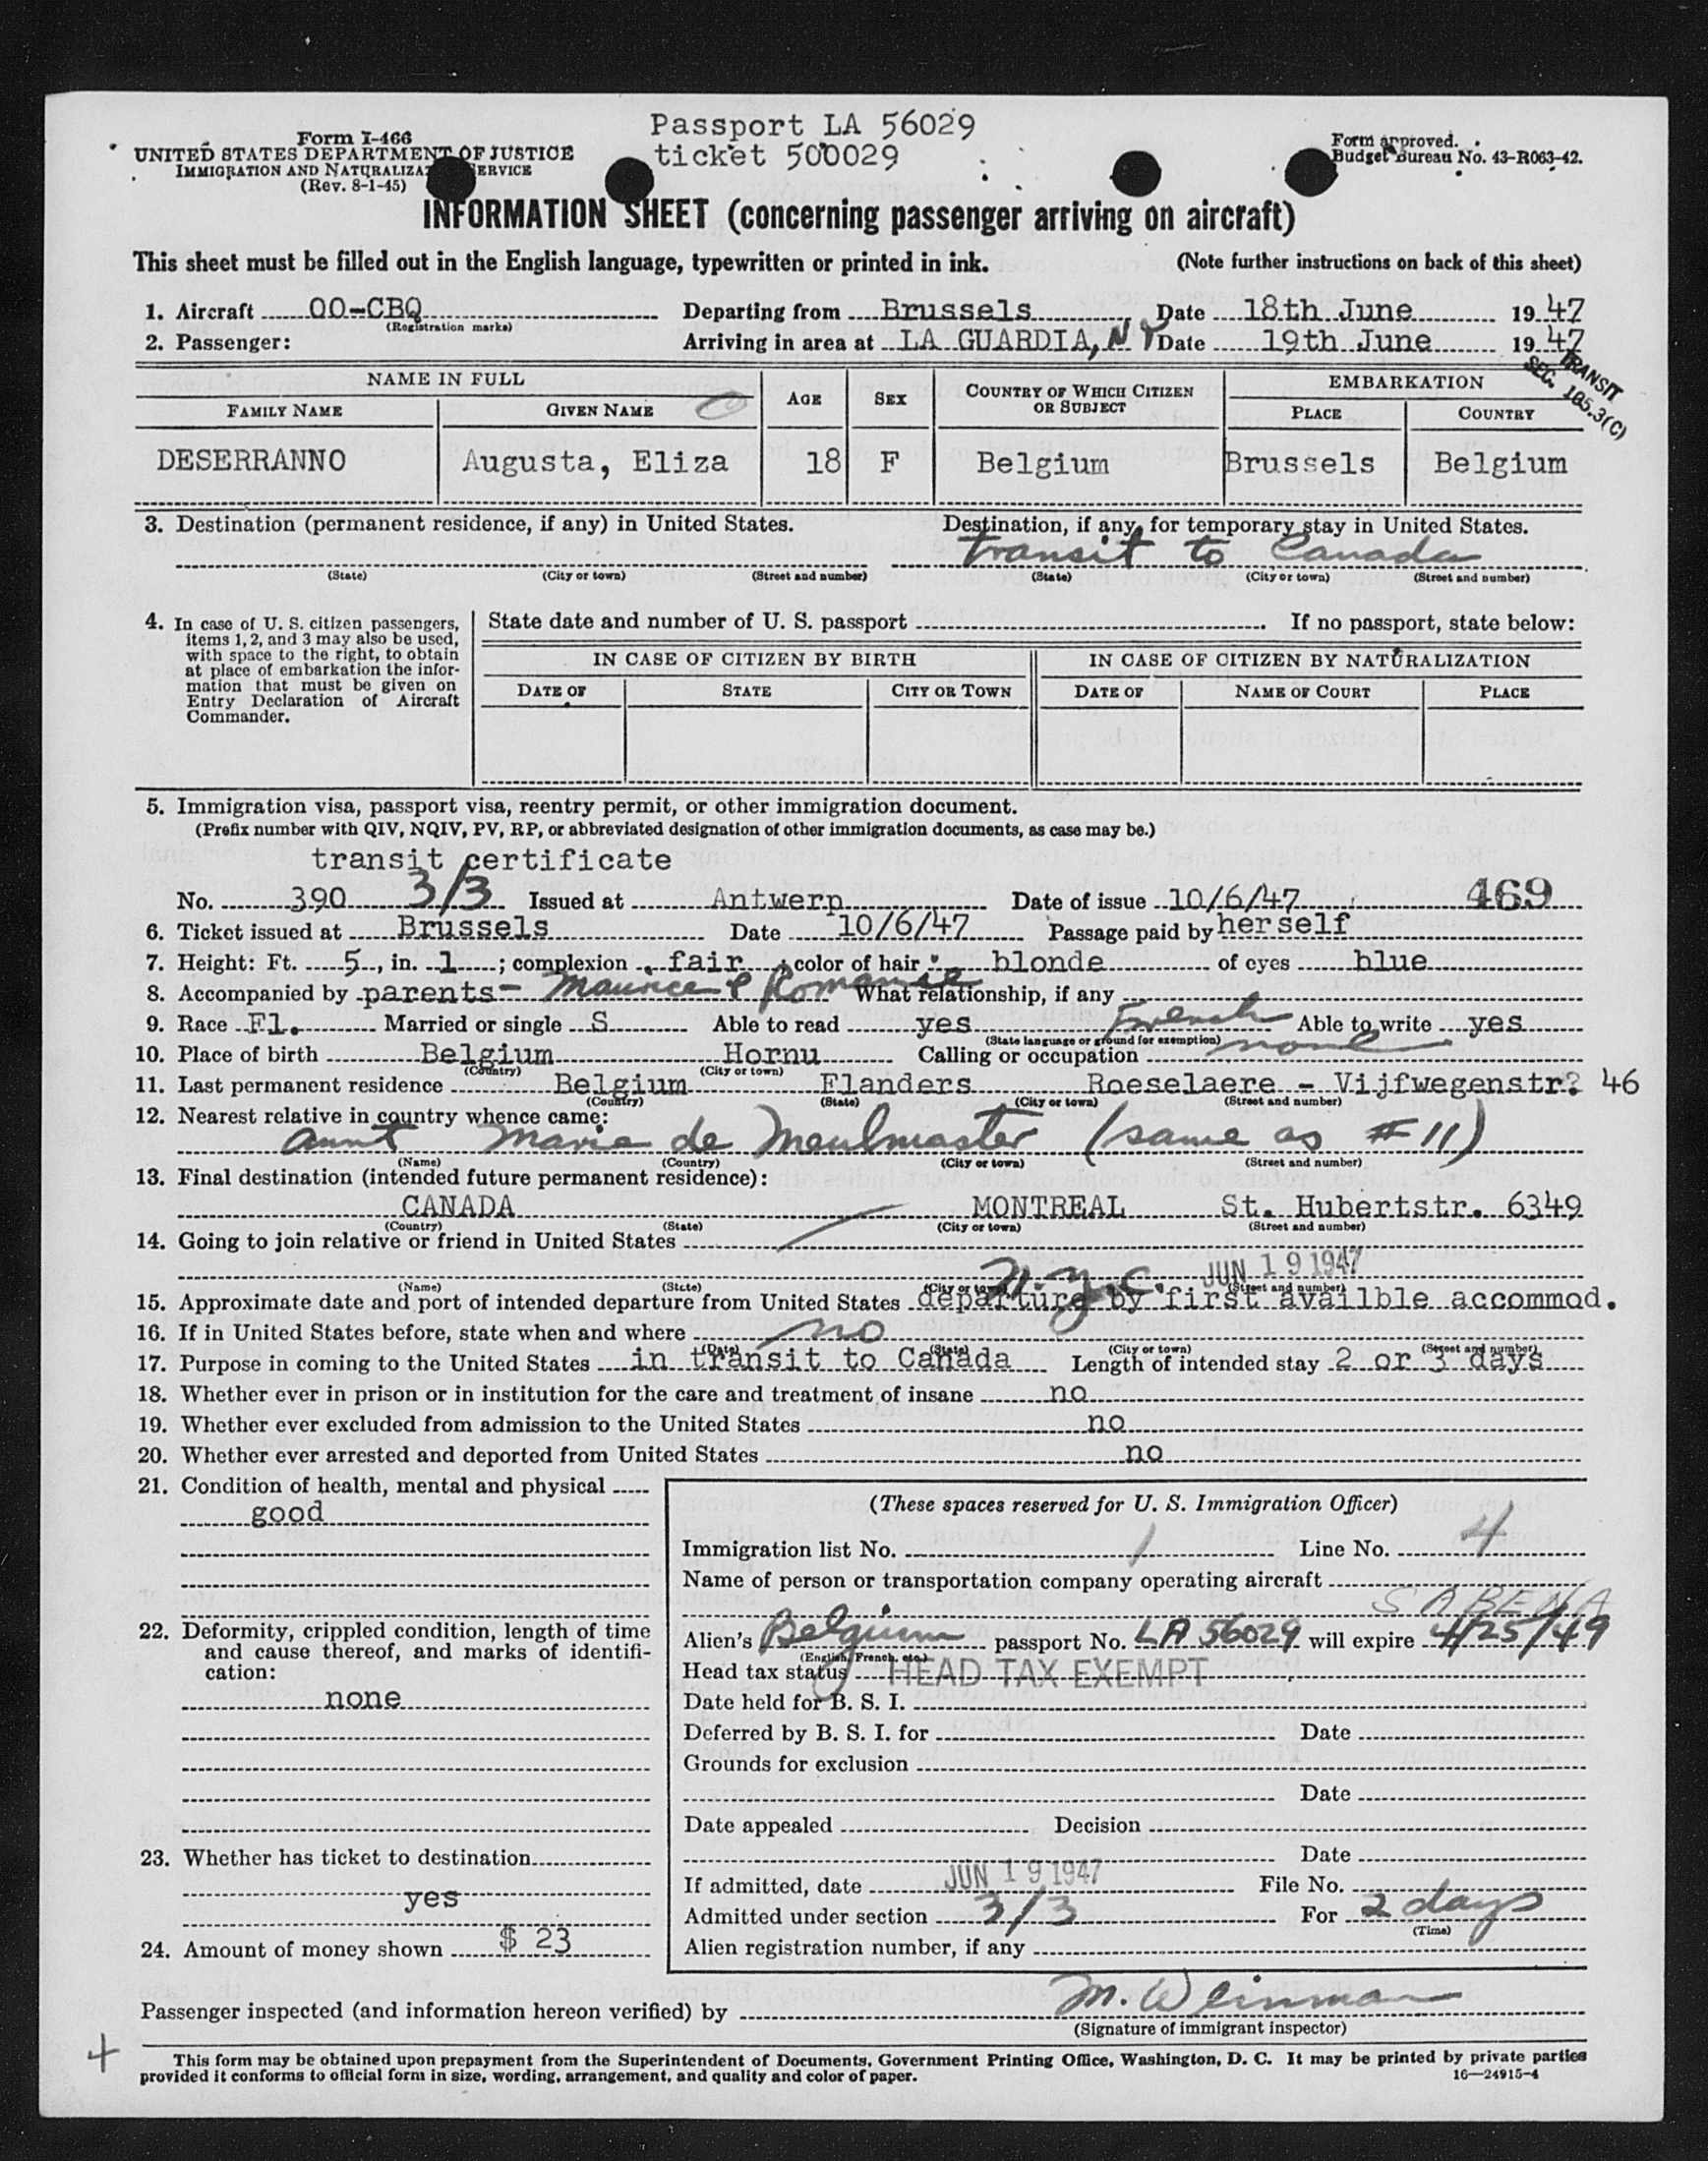 Passport LA 56029
ticket 500029
Form I-466
UNITED STATES DEPARTMENT OF JUSTICE
IMMIGRATION AND NATURALIZA ERVICE
(Rev. 8-1-45)
Form approved.
Budget Bureau No. 43-R063-42.
INFORMATION SHEET (concerning passenger arriving on aircraft)
This sheet must be filled out in the English language, typewritten or printed in ink. (Note further instructions on back of this sheet)
1. Aircraft OO-CBQ Departing from Brussels Date 18th June 1947
(Registration marks)
2. Passenger: Arriving in area at LA GUARDIA, N Y Date 19th June 1947
TRANSIT
SEC. 105.3(C)
NAME IN FULL AGE SEX COUNTRY OF WHICH CITIZEN OR SUBJECT EMBARKATION
FAMILY NAME GIVEN NAME PLACE COUNTRY
DESERRANNO Augusta, Eliza 18 F Belgium Brussels Belgium
3. Destination (permanent residence, if any) in United States. Destination, if any, for temporary stay in United States.
transit to Canada
(State) (City or town) (Street and number) (State) (City or town) (Street and number)
4. In case of U. S. citizen passengers, items 1, 2, and 3 may also be used, with space to the right, to obtain at place of embarkation the information that must be given on Entry Declaration of Aircraft Commander.
State date and number of U. S. passport If no passport, state below:
IN CASE OF CITIZEN BY BIRTH IN CASE OF CITIZEN BY NATURALIZATION
DATE OF STATE CITY OR TOWN DATE OF NAME OF COURT PLACE
5. Immigration visa, passport visa, reentry permit, or other immigration document.
(Prefix number with QIV, NQIV, PV, RP, or abbreviated designation of other immigration documents, as case may be.)
transit certificate
No. 390 3/3 Issued at Antwerp Date of issue 10/6/47 469
6. Ticket issued at Brussels Date 10/6/47 Passage paid by herself
7. Height: Ft. 5, in. 1; complexion fair; color of hair blonde of eyes blue
8. Accompanied by parents - Maurice & Romanie What relationship, if any
9. Race Fl. Married or single S Able to read yes French Able to write yes
(State language or ground for exemption)
10. Place of birth Belgium Hornu Calling or occupation none
(Country) (City or town)
11. Last permanent residence Belgium Flanders Roeselaere - Vijfwegenstr. 46
(Country) (State) (City or town) (Street and number)
12. Nearest relative in country whence came:
aunt Marie de Meulmaster (same as #11)
(Name) (Country) (City or town) (Street and number)
13. Final destination (intended future permanent residence):
CANADA MONTREAL St. Hubertstr. 6349
(Country) (State) (City or town) (Street and number)
14. Going to join relative or friend in United States
N.Y.C. JUN 19 1947
(Name) (State) (City or town) (Street and number)
15. Approximate date and port of intended departure from United States departure by first availble accommod.
16. If in United States before, state when and where no
(Date) (State) (City or town) (Street and number)
17. Purpose in coming to the United States in transit to Canada Length of intended stay 2 or 3 days
18. Whether ever in prison or in institution for the care and treatment of insane no
19. Whether ever excluded from admission to the United States no
20. Whether ever arrested and deported from United States no
21. Condition of health, mental and physical
good
22. Deformity, crippled condition, length of time and cause thereof, and marks of identification:
none
23. Whether has ticket to destination
yes
24. Amount of money shown $ 23
(These spaces reserved for U. S. Immigration Officer)
Immigration list No. 1 Line No. 4
Name of person or transportation company operating aircraft
SABENA
Alien's Belgium passport No. LA 56029 will expire 4/25/49
(English, French, etc.)
Head tax status HEAD TAX EXEMPT
Date held for B. S. I.
Deferred by B. S. I. for Date
Grounds for exclusion
Date
Date appealed Decision
Date
If admitted, date JUN 19 1947 File No.
Admitted under section 3/3 For 2 days
(Time)
Alien registration number, if any
Passenger inspected (and information hereon verified) by M. Weinman
(Signature of immigrant inspector)
4
This form may be obtained upon prepayment from the Superintendent of Documents, Government Printing Office, Washington, D. C. It may be printed by private parties
provided it conforms to official form in size, wording, arrangement, and quality and color of paper. 16—24915-4